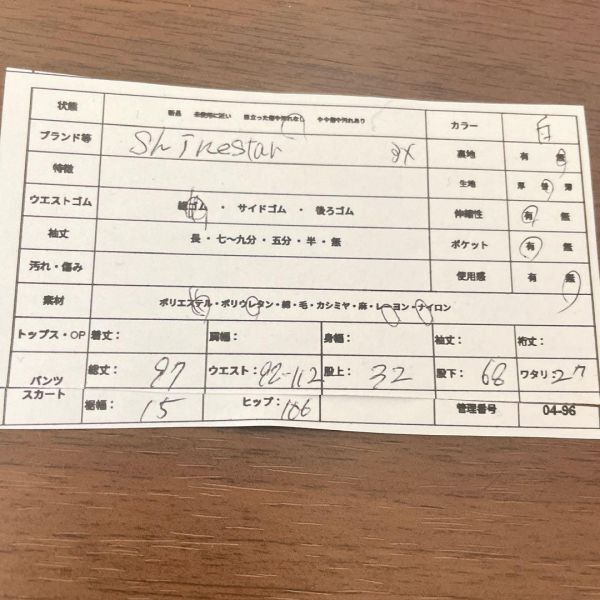 状態 新品 未使用に近い 目立った傷や汚れなし やや傷や汚れあり カラー 白
ブランド等 ShineStar 3X 裏地 有 無
特徴 生地 厚 普 薄
ウエストゴム 総ゴム ・ サイドゴム ・ 後ろゴム 伸縮性 有 無
袖丈 長・七〜九分・五分・半・無 ポケット 有 無
汚れ・傷み 使用感 有 無
素材 ポリエステル・ポリウレタン・綿・毛・カシミヤ・麻・レーヨン・ナイロン
トップス・OP 着丈: 肩幅: 身幅: 袖丈: 裄丈:
パンツ スカート 総丈: 97 ウエスト: 92-112 股上: 32 股下: 68 ワタリ: 27
裾幅: 15 ヒップ: 106 管理番号 04-96